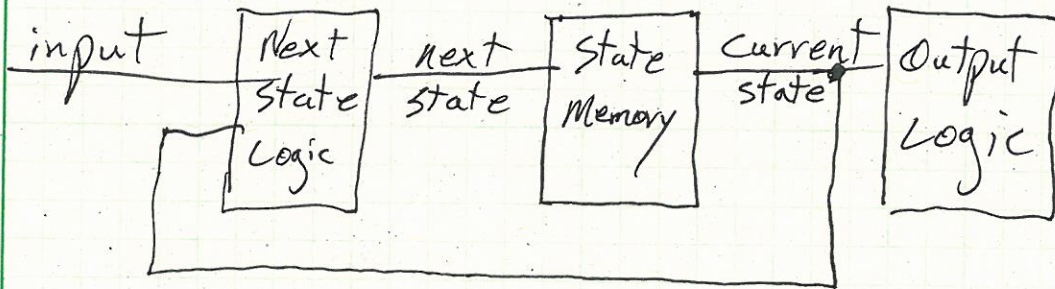 input
Next
State
Logic
next
state
State
Memory
Current
state
Output
Logic